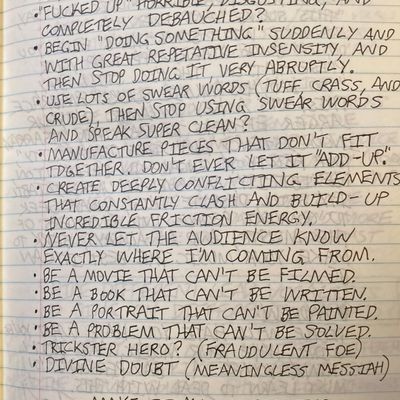 "FUCKED UP" HORRIBLE, DISGUSTING, AND
COMPLETELY DEBAUCHED?
• BEGIN "DOING SOMETHING" SUDDENLY AND
WITH GREAT REPETATIVE INSENSITY, AND
THEN STOP DOING IT VERY ABRUPTLY.
• USE LOTS OF SWEAR WORDS (TUFF, CRASS, AND
CRUDE), THEN STOP USING SWEAR WORDS
AND SPEAK SUPER CLEAN?
• MANUFACTURE PIECES THAT DON'T FIT
TOGETHER. DON'T EVER LET IT "ADD-UP."
• CREATE DEEPLY CONFLICTING ELEMENTS
THAT CONSTANTLY CLASH AND BUILD-UP
INCREDIBLE FRICTION ENERGY.
• NEVER LET THE AUDIENCE KNOW
EXACTLY WHERE I'M COMING FROM.
• BE A MOVIE THAT CAN'T BE FILMED.
• BE A BOOK THAT CAN'T BE WRITTEN.
• BE A PORTRAIT THAT CAN'T BE PAINTED.
• BE A PROBLEM THAT CAN'T BE SOLVED.
• TRICKSTER HERO? (FRAUDULENT FOE)
• DIVINE DOUBT (MEANINGLESS MESSIAH)